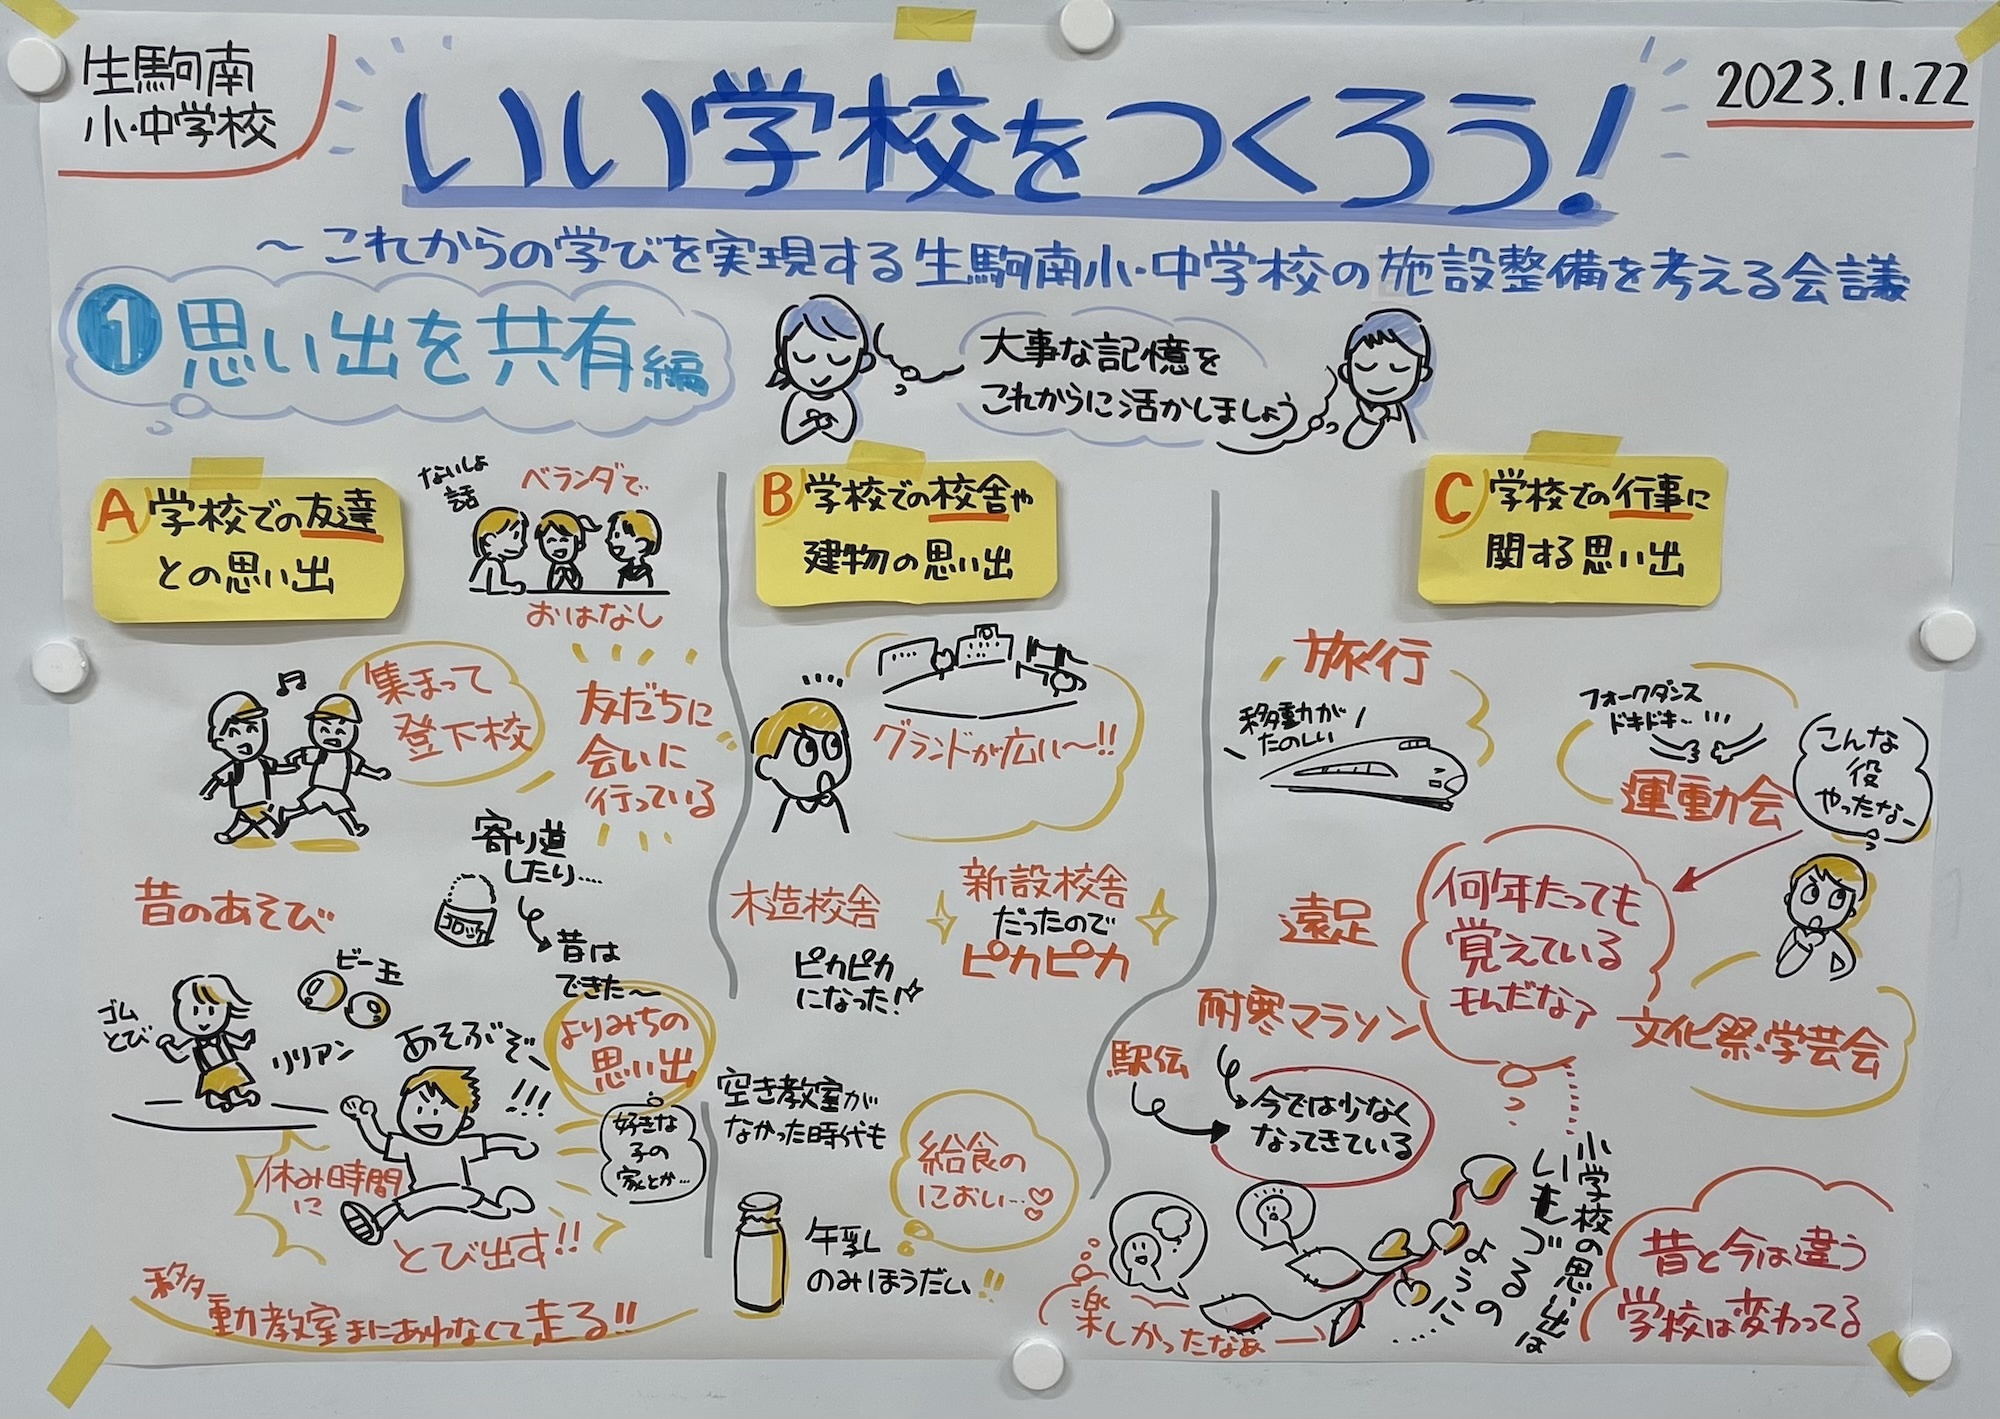 生駒南
小・中学校
いい学校をつくろう!
2023.11.22
〜これからの学びを実現する生駒南小・中学校の施設整備を考える会議
1 思い出を共有編
大事な記憶を
これからに活かしましょう
A 学校での友達
との思い出
ないしょ
話
ベランダで
おはなし
集まって
登下校
友だちに
会いに
行っている
寄り道
したり……
コロッケ
昔は
できた〜
よりみちの
思い出
好きな
子の
家とか…
昔のあそび
ビー玉
ゴム
とび
リリアン
あそぶぞ、
!!!
休み時間
に
とび出す!!
移動教室まにあわなくて走る!!
B 学校での校舎や
建物の思い出
グランドが広い〜!!
木造校舎
ピカピカ
になった!
新設校舎
だったので
ピカピカ
空き教室が
なかった時代も
給食の
におい…♡
牛乳
のみほうだい!!
C 学校での行事に
関する思い出
旅行
移動が
たのしい!
フォークダンス
ドキドキ…
運動会
こんな
役
やったなー
遠足
何年たっても
覚えている
もんだなァ
耐寒マラソン
文化祭・学芸会
駅伝
今では少なく
なってきている
小学校の思い出は
いもづるの
ように……
楽しかったなぁ
昔と今は違う
学校は変わってる